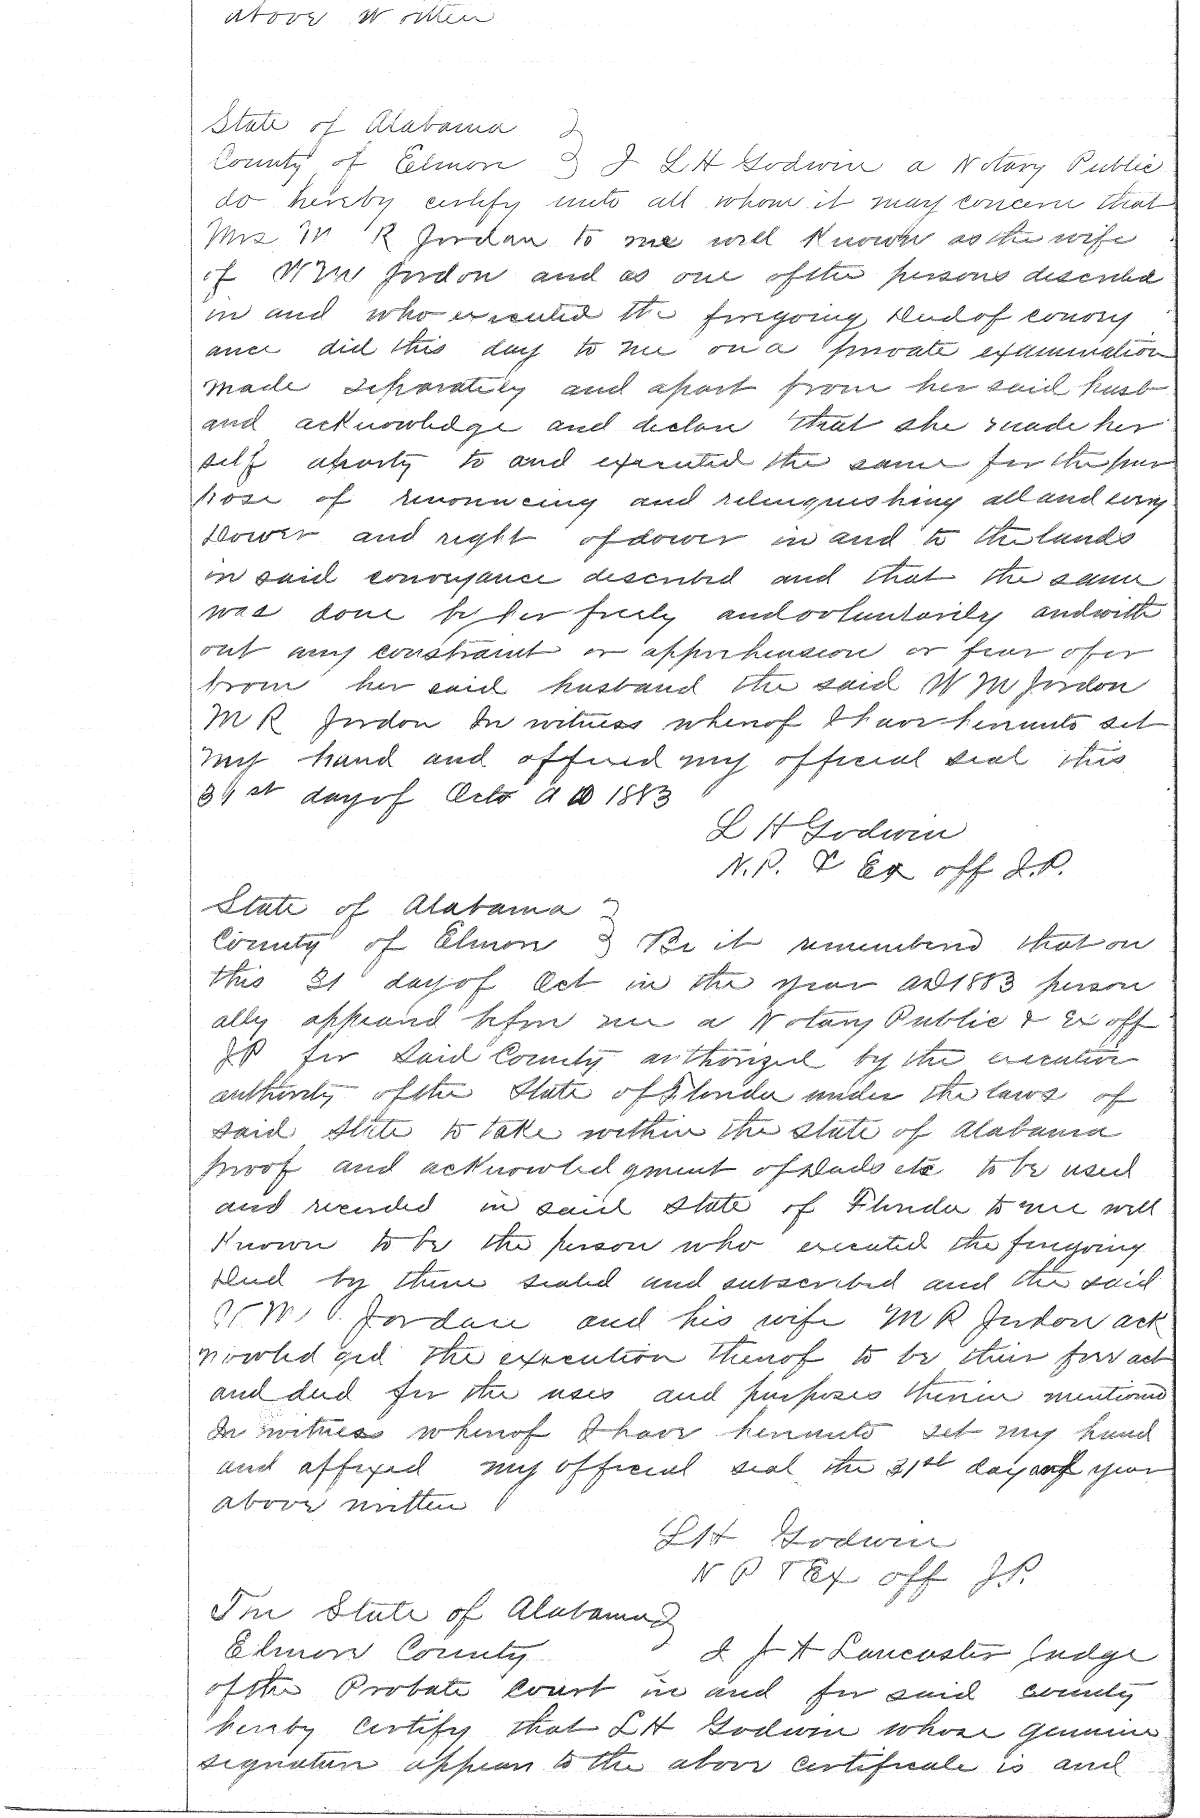 above written
State of Alabama }
County of Elmore } I L H Godwin a Notary Public
do hereby certify unto all whom it may concern that
Mrs M R Jordan to me well Known as the wife
of W M Jordon and as one of the persons described
in and who executed the foregoing Deed of convey
ance did this day to me on a private examination
made seperately and apart from her said husb
and acknowledge and declare that she made her
self aparty to and executed the same for the pur
pose of renouncing and relinquishing all and every
Dower and right of dower in and to the lands
in said conveyance described and that the same
was done by her freely and voluntarily and with
out any constraint or apprehension or fear of or
from her said husband the said W M Jordon
M R Jordon In witness whereof I have hereunto set
my hand and affixed my official seal this
31st day of Octo A D 1883
L H Godwin
N.P. & Ex off J.P.
State of Alabama }
County of Elmore } Be it remembered that on
this 31 day of Oct in the year AD 1883 person
ally appeared before me a Notary Public & Ex off
JP for Said County authorized by the executive
authority of the State of Florida under the laws of
said State to take within the state of Alabama
proof and acknowledgment of Deeds etc to be used
and recorded in said State of Florida to me well
Known to be the person who executed the foregoing
Deed by them sealed and subscribed and the said
W M Jordan and his wife M R Jordon ack
nowledged the execution thereof to be their free act
and deed for the uses and purposes therein mentioned
In witness whereof I have hereunto set my hand
and affixed my official seal the 31st day and year
above written
L H Godwin
N P & Ex off J.P.
The State of Alabama }
Elmore County I J A Lancaster Judge
of the Probate Court in and for said county
hereby certify that L H Godwin whose genuine
signature appears to the above certificate is and